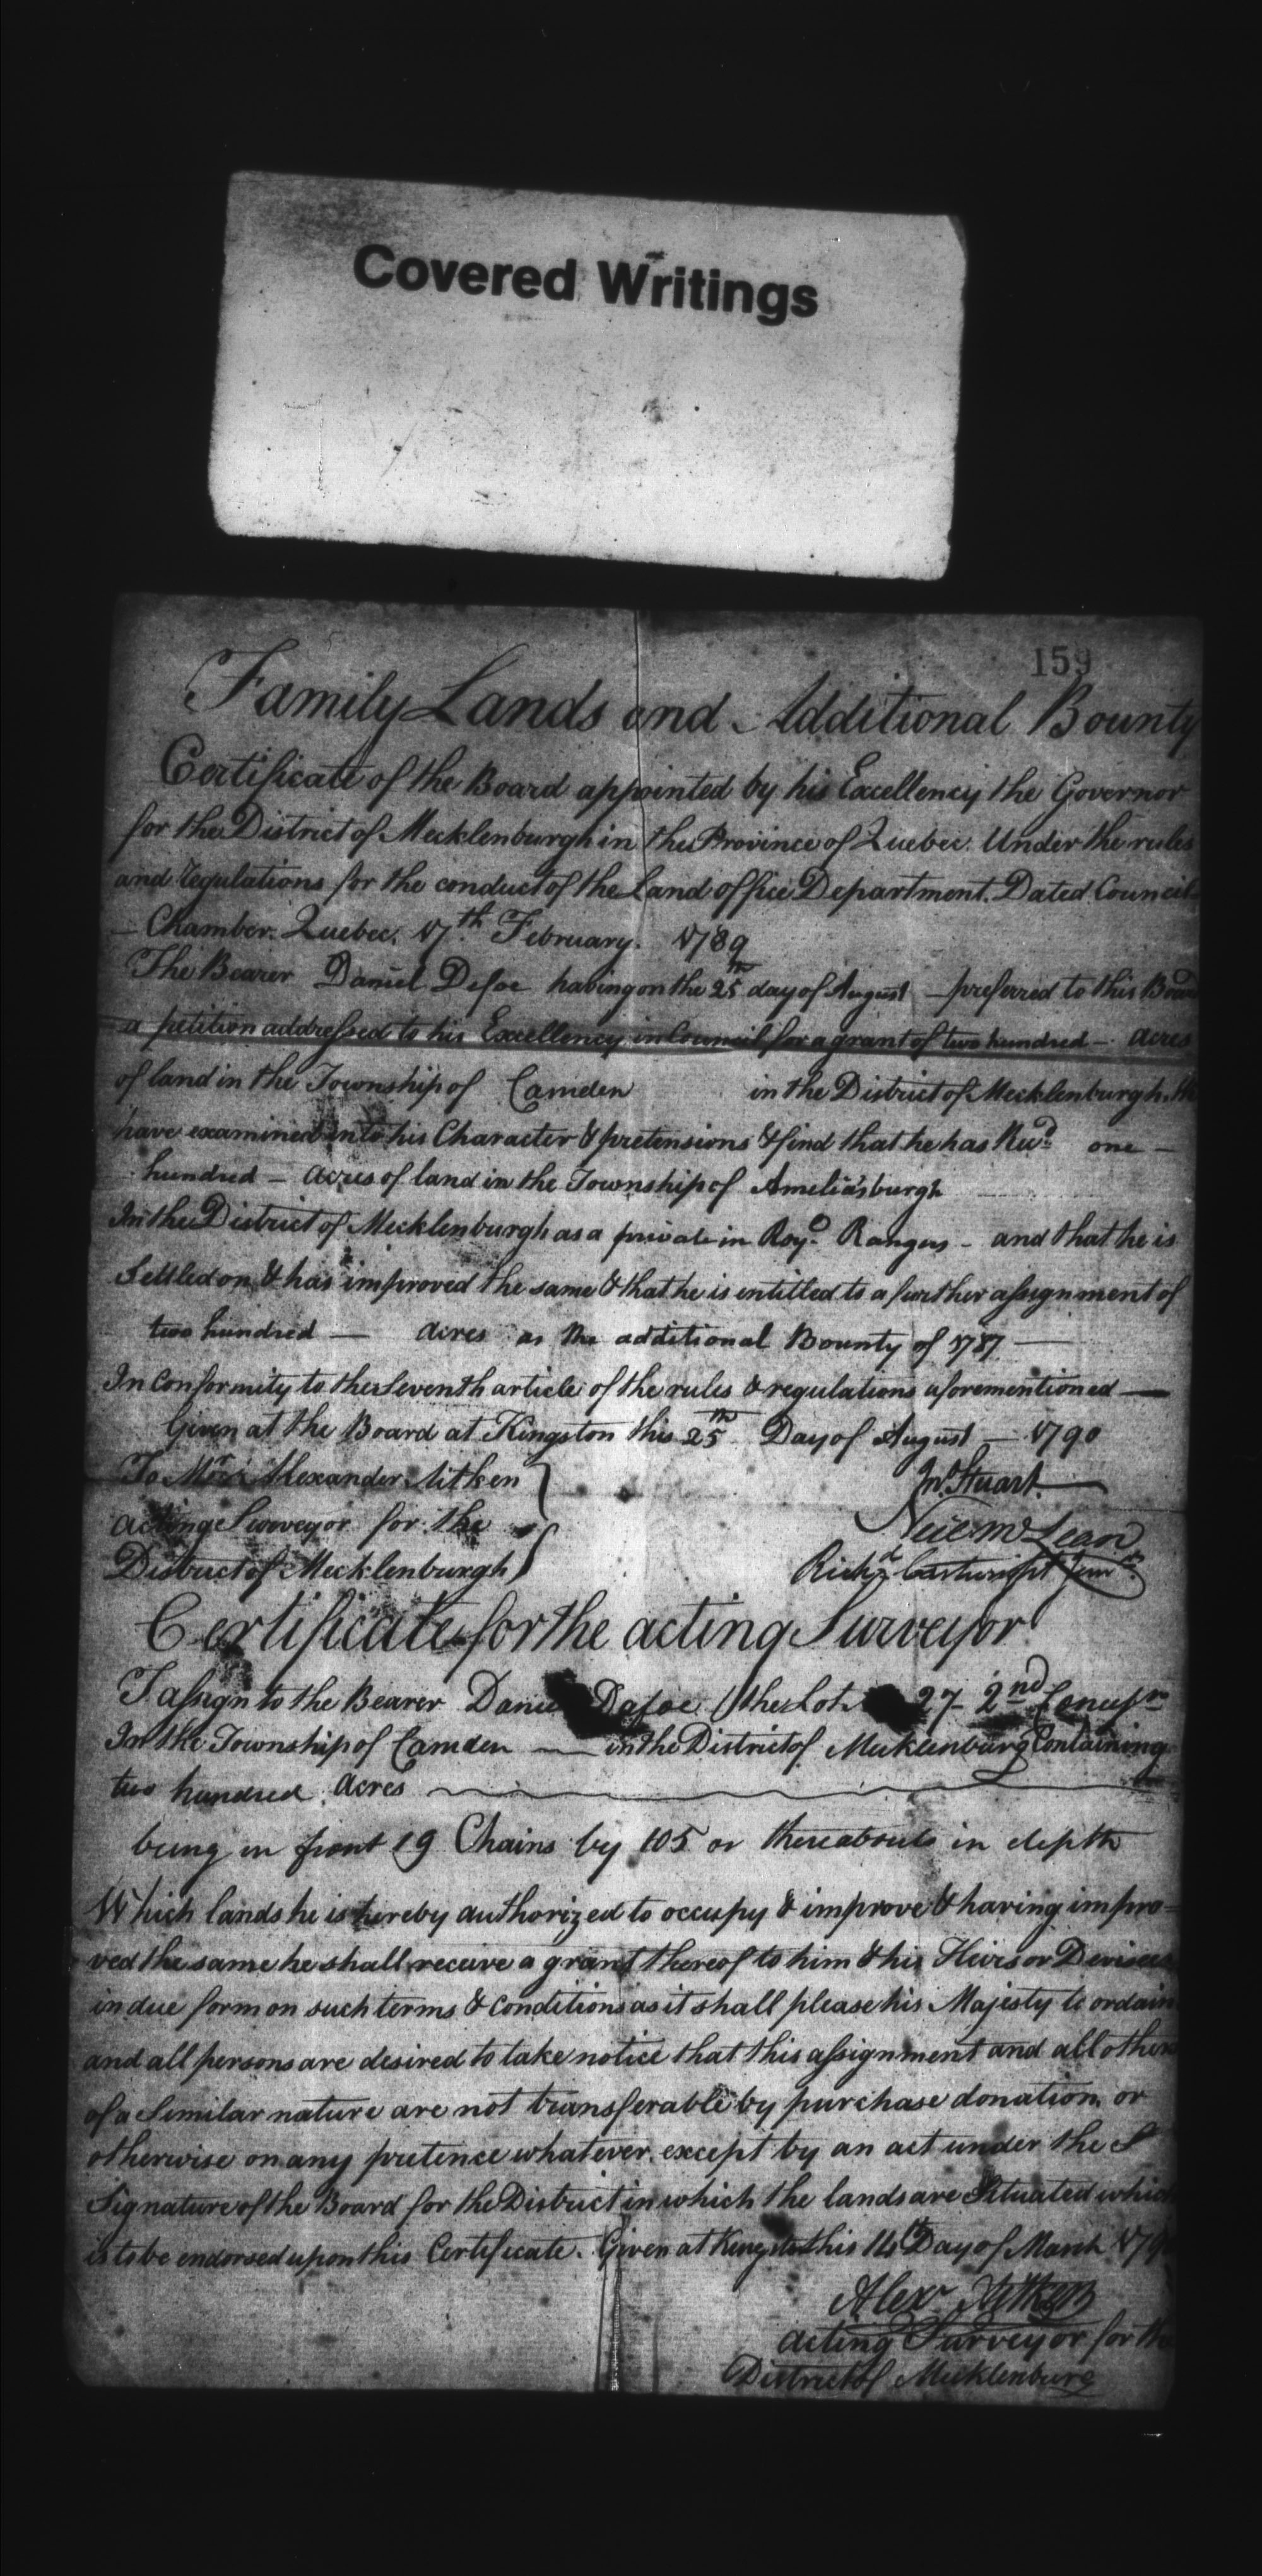 Covered Writings
159
Family Lands and Additional Bounty
Certificate of the Board appointed by his Excellency the Governor
for the District of Mecklenburgh in the Province of Quebec. Under the rules
and regulations for the conduct of the Land office Department. Dated Council
- Chamber. Quebec. 17th February. 1789
The Bearer Daniel Defoe having on the 25th day of August - preferred to this Board
a petition addressed to his Excellency in Council for a grant of two hundred - acres
of land in the Township of Camden in the District of Mecklenburgh. We
have examined into his Character & pretensions & find that he has Recd one -
hundred - acres of land in the Township of Ameliasburgh
In the District of Mecklenburgh as a private in Roy. Rangers - and that he is
Settled on & has improved the same & that he is entitled to a further assignment of
two hundred - acres as the additional Bounty of 1787 -
In Conformity to the Seventh article of the rules & regulations aforementioned -
Given at the Board at Kingston this 25th Day of August - 1790
To Mr Alexander Aitken
Jn. Stuart
acting Surveyor for the
Neil McLean
District of Mecklenburgh
Richd Cartwright Junr
Certificate for the acting Surveyor
I assign to the Bearer Daniel Defoe the Lot 27 - 2nd Concessn
In the Township of Camden - in the District of Mecklenburg Containing
two hundred acres
being in front 19 Chains by 105 or thereabouts in depth
Which lands he is hereby authorized to occupy & improve & having impro=
ved the same he shall receive a grant thereof to him & his Heirs or Devisees
in due form on such terms & Conditions as it shall please his Majesty to ordain
and all persons are desired to take notice that this assignment and all others
of a Similar nature are not transferable by purchase donation. or
otherwise on any pretence whatever. except by an act under the S
Signature of the Board for the District in which the lands are Situated which
is to be endorsed upon this Certificate. Given at Kingston this 14th Day of March
Alexr Aitken
acting Surveyor for the
District of Mecklenburg